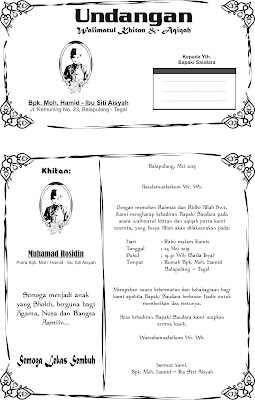 Undangan
Walimatul Khitan & Aqiqah
Kepada Yth,
Bapak/ Saudara
Bpk. Moh. Hamid - Ibu Siti Aisyah
Jl. Kemuning No. 23, Balapulang - Tegal
Khitan:
Muhamad Rosidin
Putra Bpk. Moh. Hamid - Ibu Siti Aisyah
Semoga menjadi anak
yang Sholeh, berguna bagi
Agama, Nusa dan Bangsa
Aamiin...
Semoga Lekas Sembuh
Balapulang, Mei 2019
Assalamualaikum Wr. Wb.
Dengan memohon Rahmat dan Ridho Allah Swt,
Kami mengharap kehadiran Bapak/ Saudara pada
acara walimatul khitan dan aqiqah putra kami
tercinta, yang Insya Allah akan dilaksanakan pada:
Hari : Rabu malam Kamis
Tanggal : 15 Mei 2019
Pukul : 19.30 Wib (Ba'da Isya)
Tempat : Rumah Bpk. Moh. Hamid
Balapulang - Tegal
Merupakan suatu kehormatan dan kebahagiaan bagi
kami apabila Bapak/ Saudara berkenan hadir untuk
memberikan doa restunya.
Atas kehadiran Bapak/ Saudara kami ucapkan
terima kasih.
Wassalamualaikum Wr. Wb.
Hormat kami,
Bpk. Moh. Hamid - Ibu Siti Aisyah